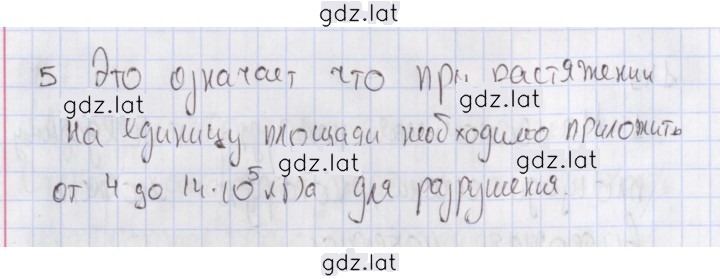 gdz.lat
5 Это означает что при растяжении
gdz.lat
gdz.lat
на единицу площади необходимо приложить
gdz.lat
gdz.lat
от 4 до 14·10⁵ кПа для разрушения.
gdz.lat